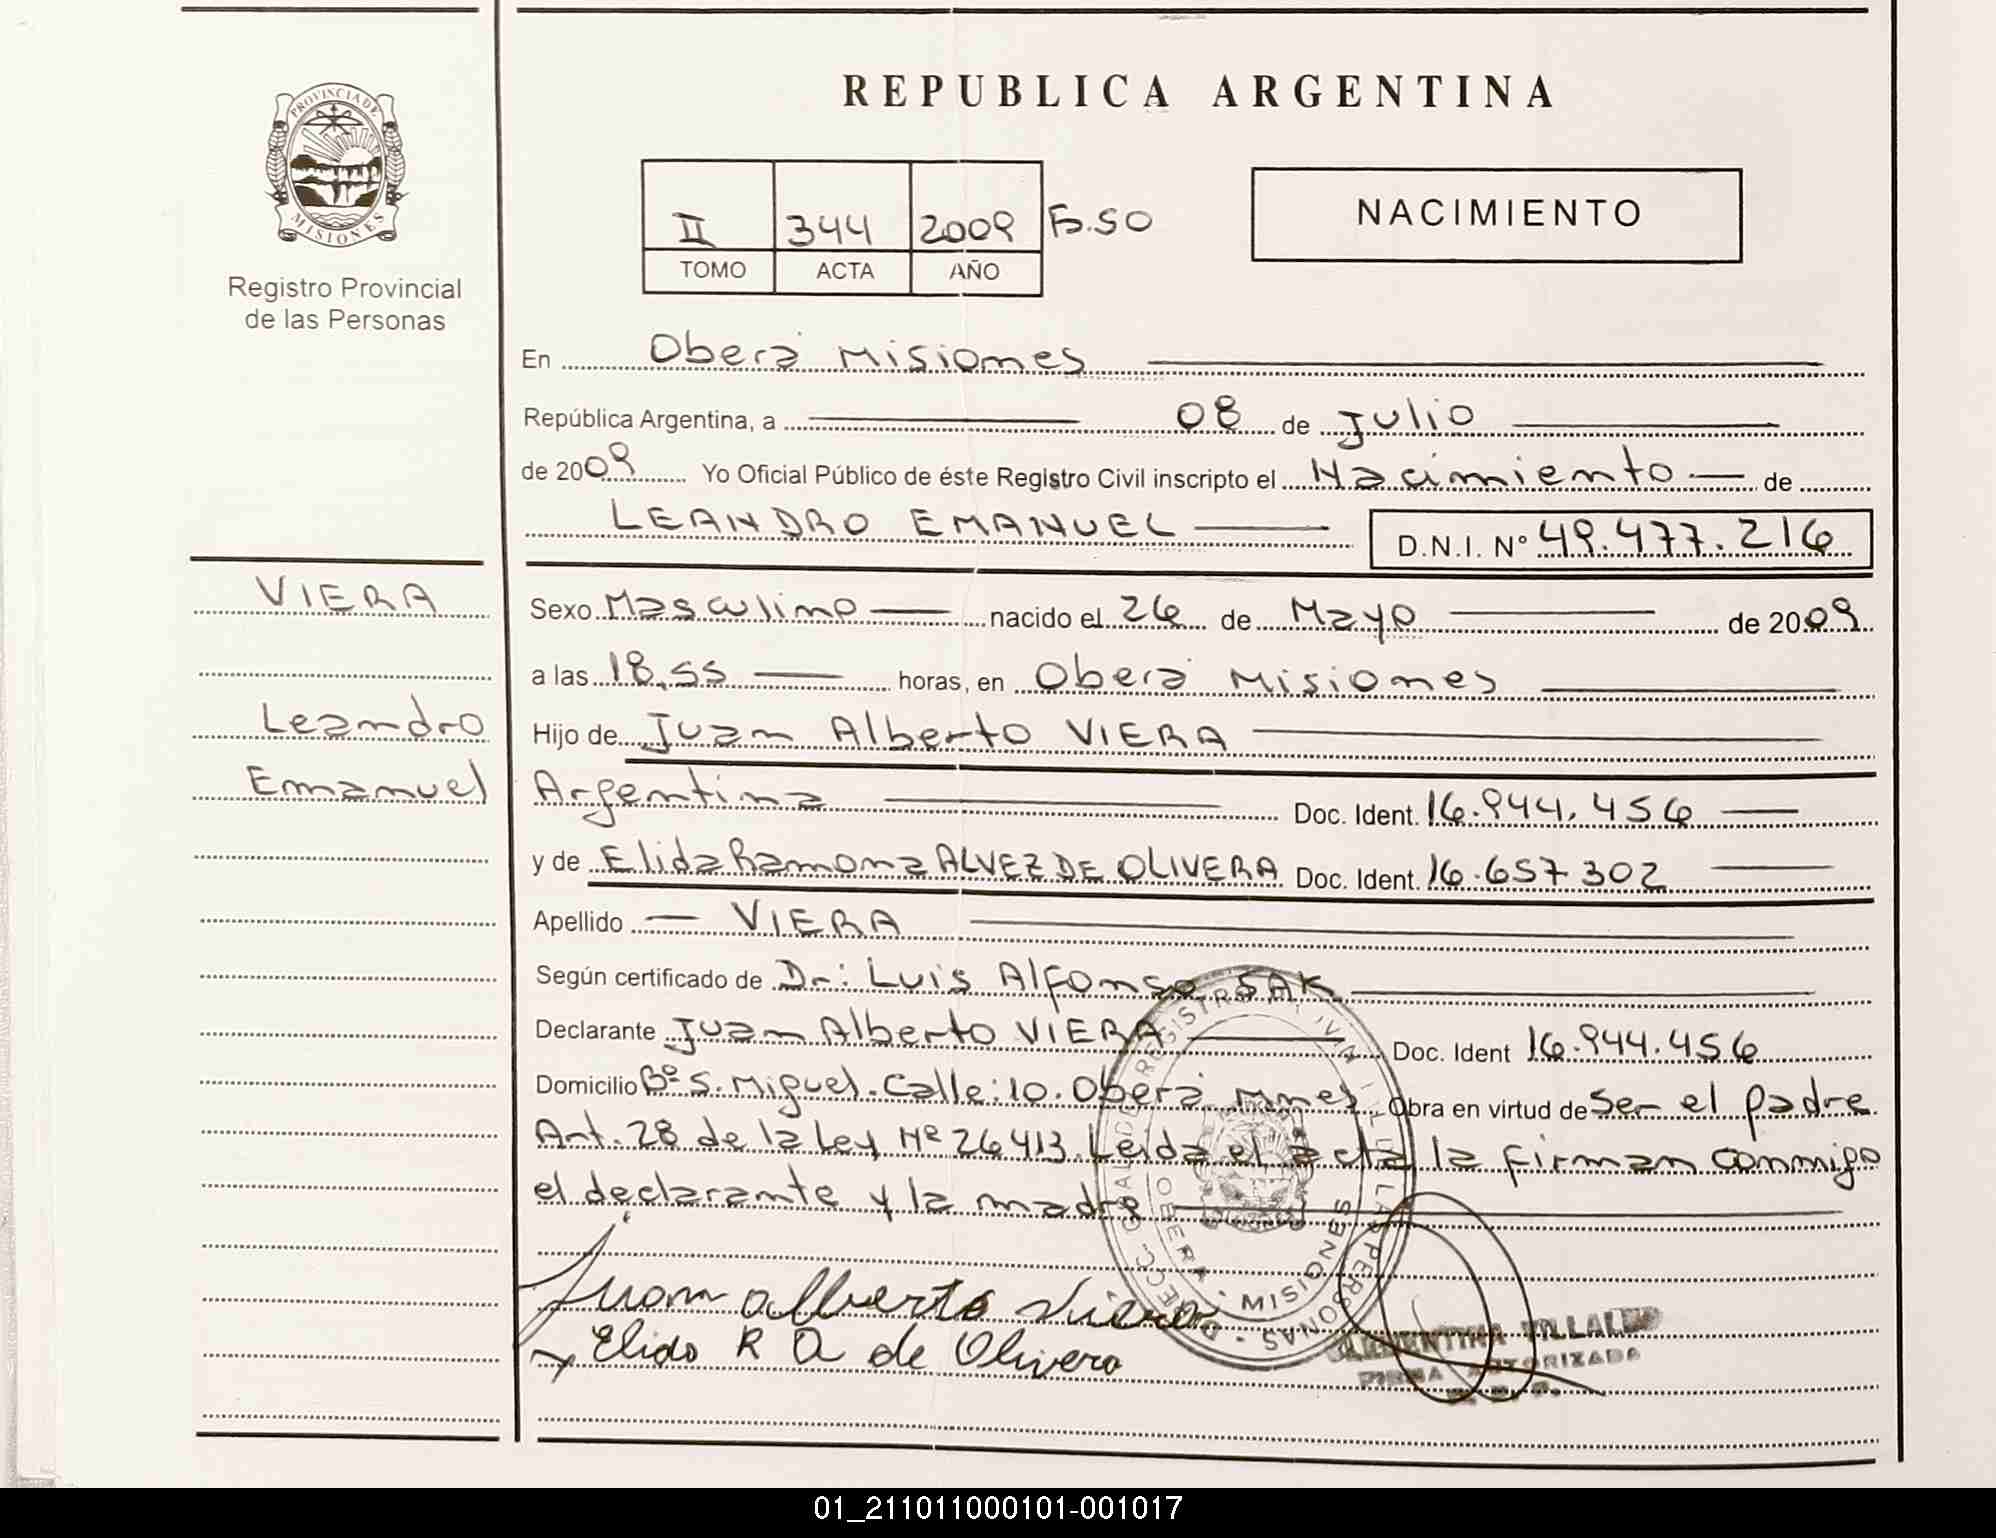 REPUBLICA ARGENTINA
PROVINCIA DE MISIONES
Registro Provincial
de las Personas
II 344 2009 Fo.50
TOMO ACTA AÑO
NACIMIENTO
En Oberá Misiones
República Argentina, a 08 de Julio
de 2009 Yo Oficial Público de éste Registro Civil inscripto el Nacimiento de
LEANDRO EMANUEL D.N.I. Nº 49.477.216
VIERA
Leandro
Emanuel
Sexo Masculino nacido el 26 de Mayo de 2009
a las 18,55 horas, en Oberá Misiones
Hijo de Juan Alberto VIERA
Argentina Doc. Ident. 16.944.456
y de Elida Ramona ALVEZ DE OLIVERA Doc. Ident. 16.657 302
Apellido VIERA
Según certificado de Dr: Luis Alfonso SAK
Declarante Juan Alberto VIERA Doc. Ident 16.944.456
Domicilio Bº S. Miguel. Calle: 10. Oberá Mnes Obra en virtud de Ser el padre
Art. 28 de la Ley Nº 26413. Leída el acta la firman conmigo
el declarante y la madre
Juan alberto Viera
Elida R A de Olivera
MISIONES
FIRMA AUTORIZADA
01_211011000101-001017